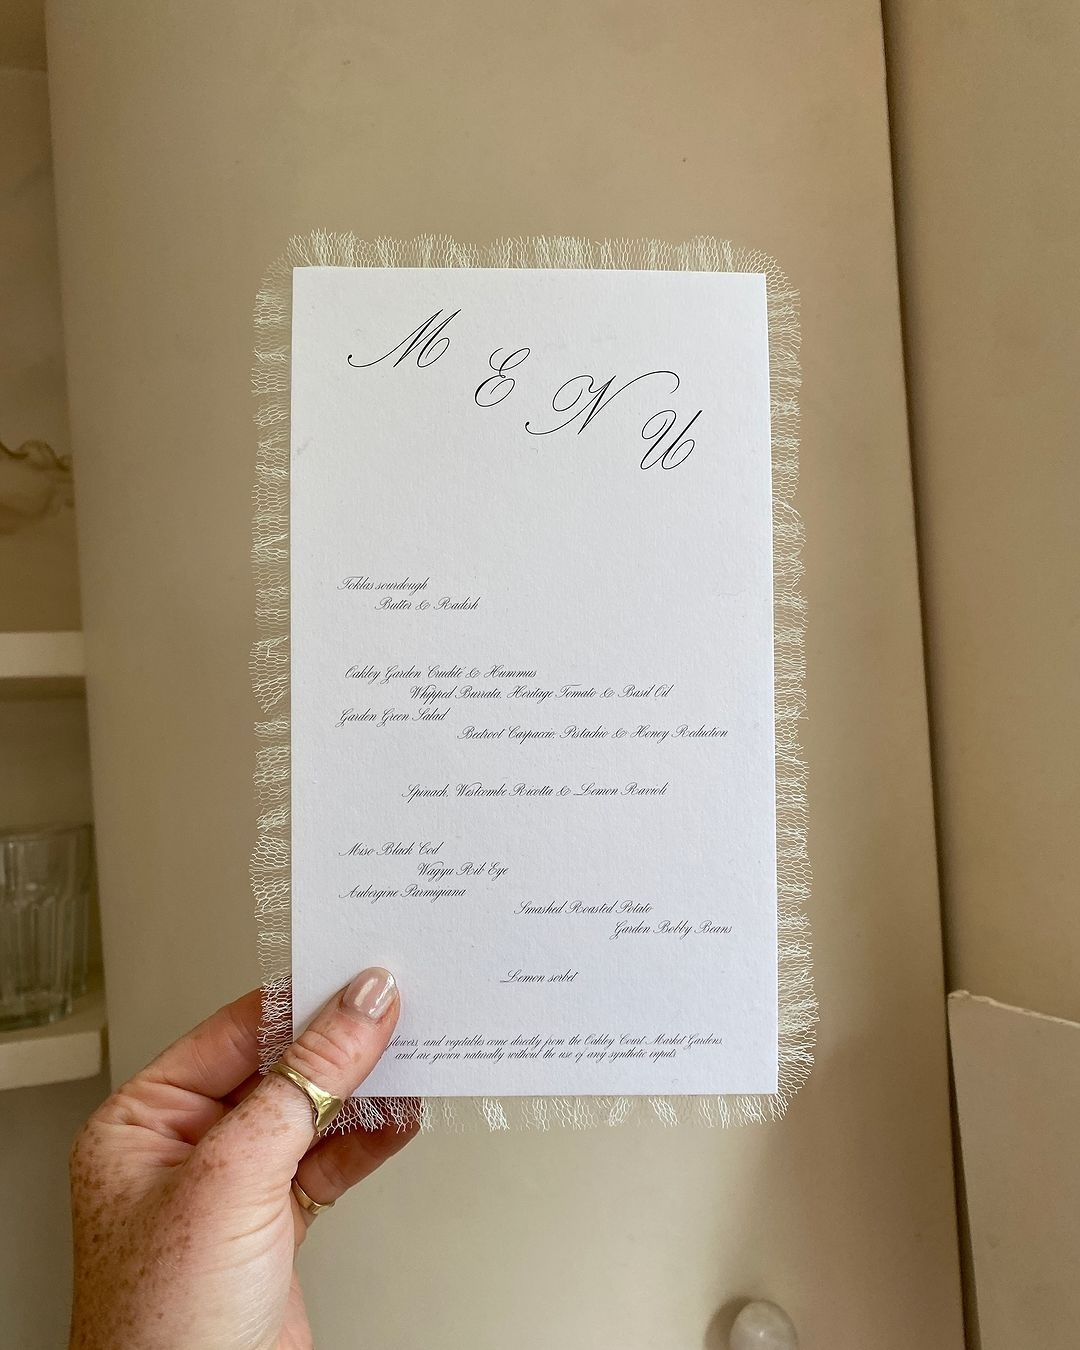 MENU
Toklas sourdough
Butter & Radish
Oakley Garden Crudité & Hummus
Whipped Burrata, Heritage Tomato & Basil Oil
Garden Green Salad
Beetroot Carpaccio, Pistachio & Honey Reduction
Spinach, Westcombe Ricotta & Lemon Ravioli
Miso Black Cod
Wagyu Rib Eye
Aubergine Parmigiana
Smashed Roasted Potato
Garden Bobby Beans
Lemon sorbet
flowers, and vegetables come directly from the Oakley Court Market Gardens,
and are grown naturally without the use of any synthetic inputs